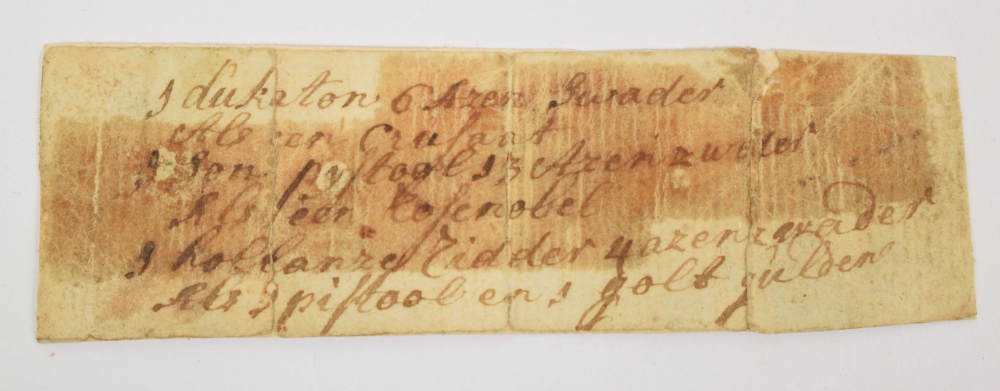 1 dukaton 6 Azen Swader
Als een Crusaat
1 Son pistool 13 Azen zwader
Als een Rosenobel
1 hollanze Ridder 4 azen zwader
Als 1 pistool en 1 golt gulden